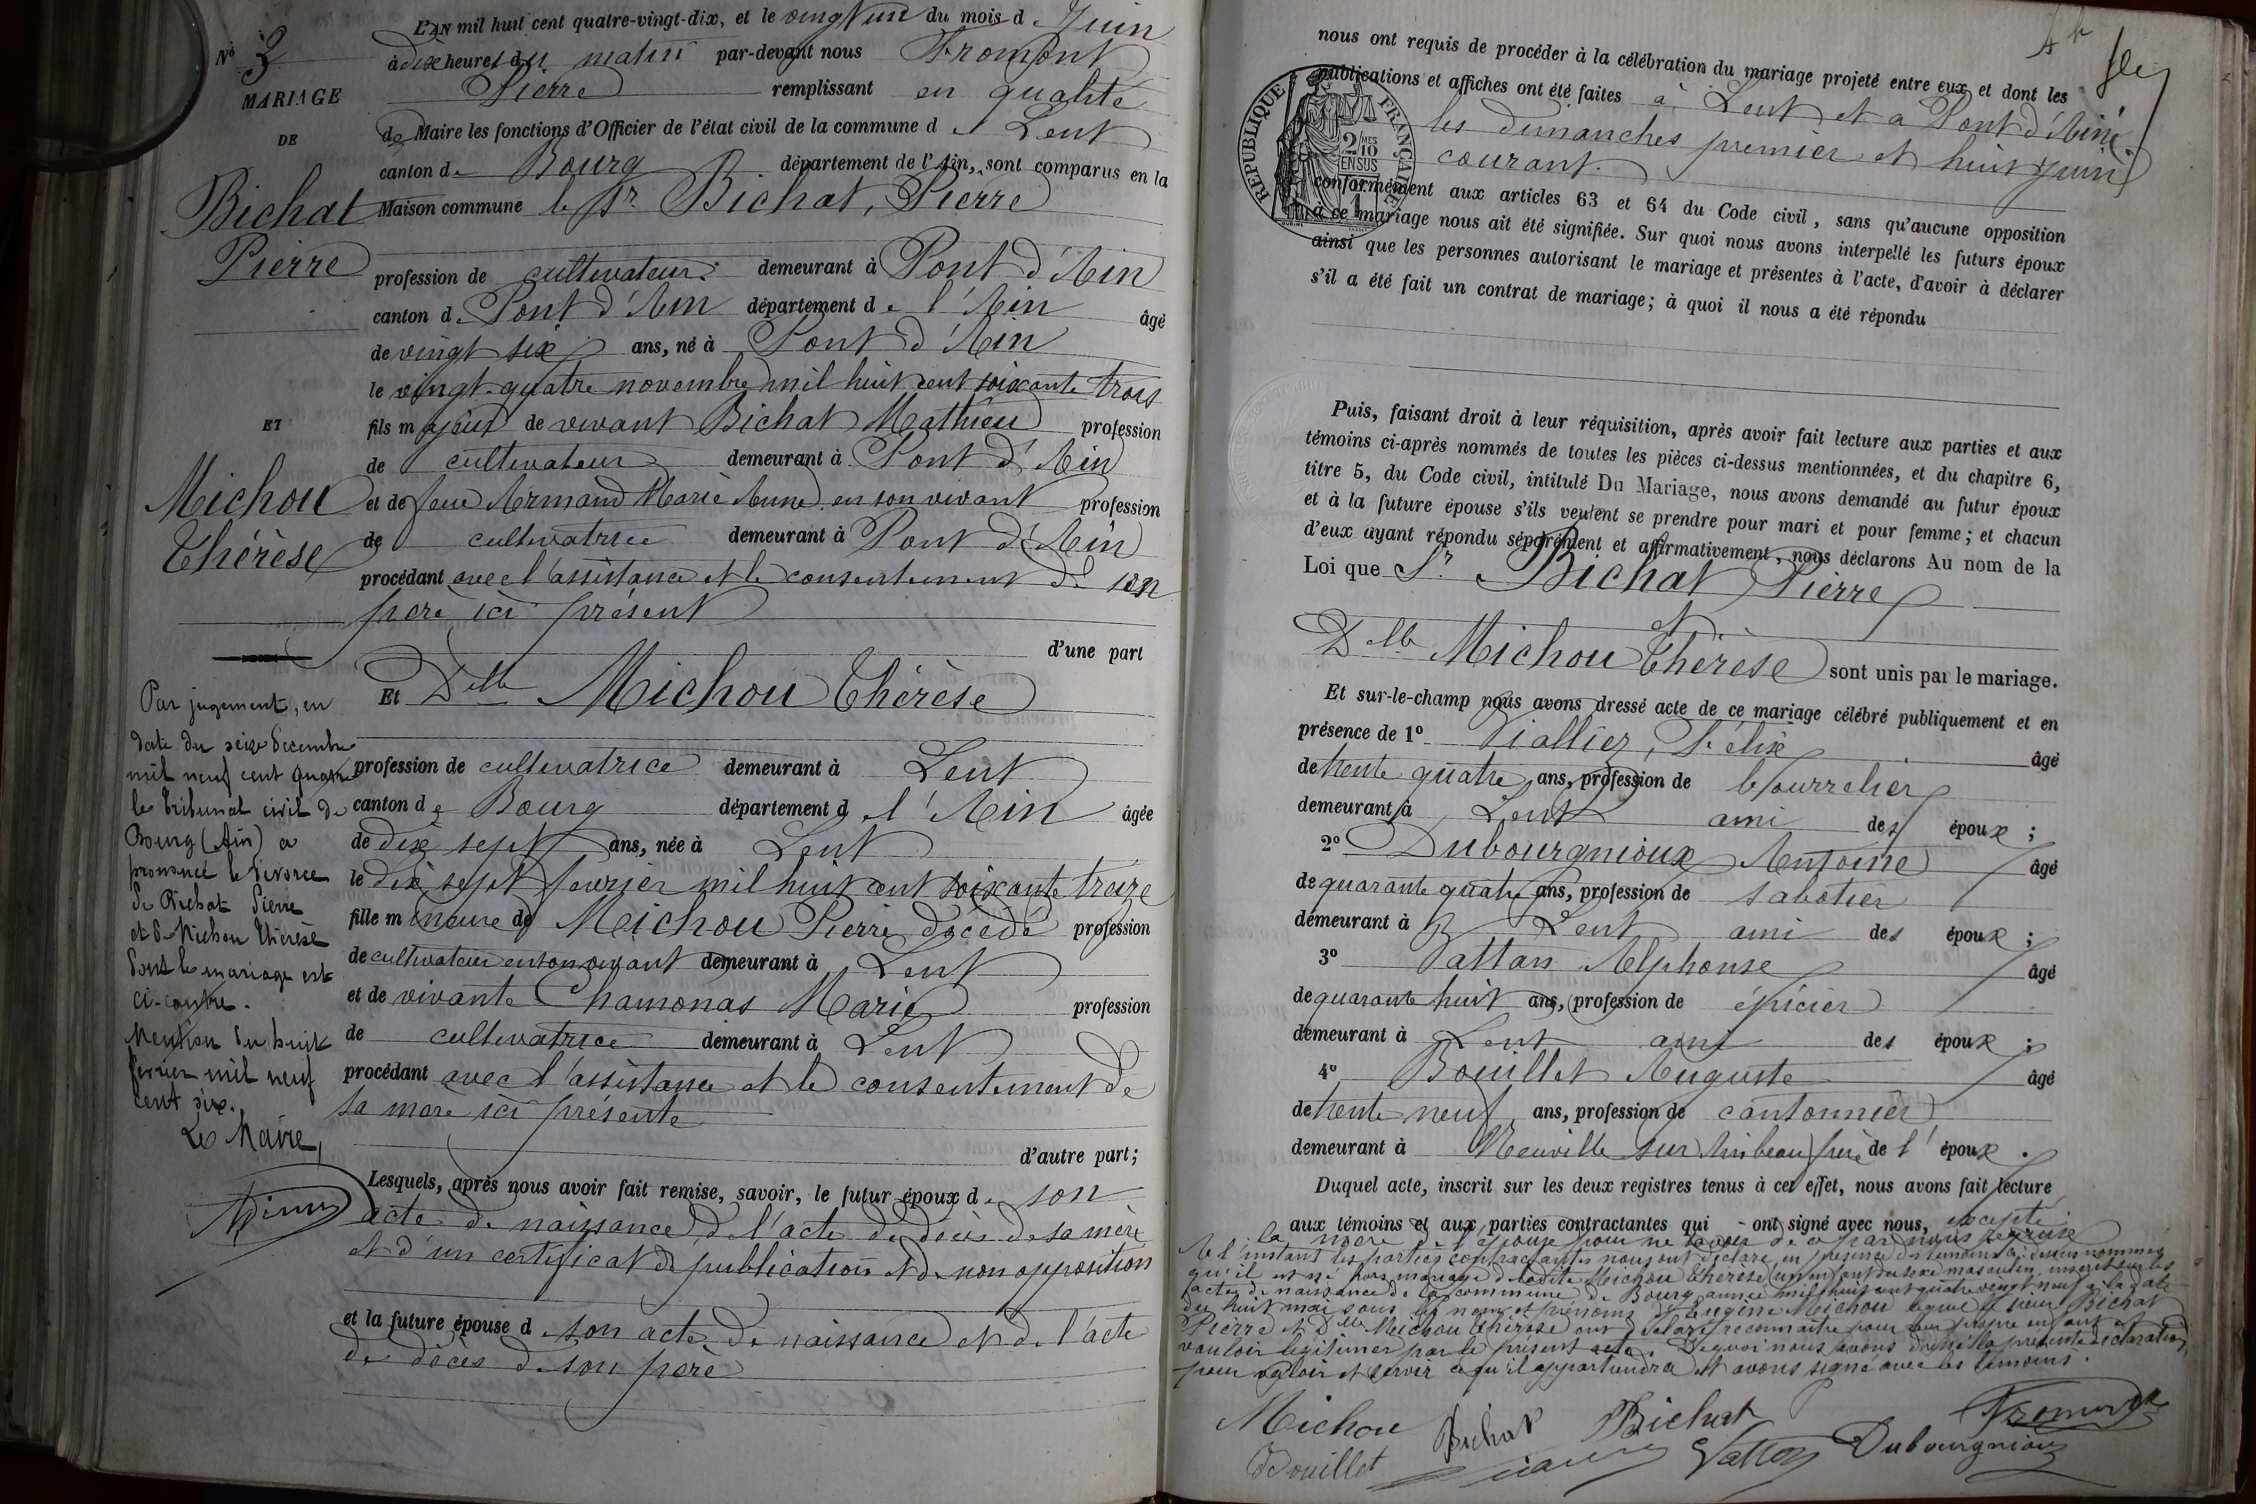 L'AN mil huit cent quatre-vingt-dix, et le vingt un du mois d Juin
à dix heures du matin par-devant nous Fromont
Pierre remplissant en qualité
de Maire les fonctions d'Officier de l'état civil de la commune d e Lent
canton de Bourg département de l'Ain, sont comparus en la
Maison commune le Sr Bichat, Pierre
profession de cultivateur demeurant à Pont d'Ain
canton d. Pont d'Ain département d e l'Ain âgé
de vingt six ans, né à Pont d'Ain
le vingt-quatre novembre mil huit cent soixante trois
fils majeur de vivant Bichat Mathieu profession
de cultivateur demeurant à Pont d'Ain
et de feue Armand Marie Anne en son vivant profession
de cultivatrice demeurant à Pont d'Ain
procédant avec l'assistance et le consentement de son
père ici présent
d'une part
Et Delle Michou Thérèse
profession de cultivatrice demeurant à Lent
canton de Bourg département d e l'Ain âgée
de dix sept ans, née à Lent
le dix sept février mil huit cent soixante treize
fille mineure de Michou Pierre décédé profession
de cultivateur en son vivant demeurant à Lent
et de vivante Chamonas Marie profession
de cultivatrice demeurant à Lent
procédant avec l'assistance et le consentement de
sa mère ici présente
d'autre part;
Lesquels, après nous avoir fait remise, savoir, le futur époux d e son
acte de naissance, de l'acte de décès de sa mère
et d'un certificat de publication et de non opposition
et la future épouse d e son acte de naissance et de l'acte
de décès de son père
No 3
MARIAGE
DE
Bichat
Pierre
ET
Michou
Thérèse
Par jugement, en
date du seize Décembre
mil neuf cent quatre
le Tribunal civil de
Bourg (Ain) a
prononcé le divorce
de Bichat Pierre
et de Michou Thérèse
dont le mariage est
ci-contre.
Mention du huit
février mil neuf
cent six.
Le Maire,
nous ont requis de procéder à la célébration du mariage projeté entre eux et dont les
publications et affiches ont été faites à Lent et à Pont d'Ain
les dimanches premier et huit Juin
courant.
RÉPUBLIQUE FRANÇAISE
2/10 MES
EN SUS
conformément aux articles 63 et 64 du Code civil, sans qu'aucune opposition
à ce mariage nous ait été signifiée. Sur quoi nous avons interpellé les futurs époux
ainsi que les personnes autorisant le mariage et présentes à l'acte, d'avoir à déclarer
s'il a été fait un contrat de mariage; à quoi il nous a été répondu
Puis, faisant droit à leur réquisition, après avoir fait lecture aux parties et aux
témoins ci-après nommés de toutes les pièces ci-dessus mentionnées, et du chapitre 6,
titre 5, du Code civil, intitulé Du Mariage, nous avons demandé au futur époux
et à la future épouse s'ils veulent se prendre pour mari et pour femme; et chacun
d'eux ayant répondu séparément et affirmativement, nous déclarons Au nom de la
Loi que Sr Bichat Pierre
et
Delle Michou Thérèse sont unis par le mariage.
Et sur-le-champ nous avons dressé acte de ce mariage célébré publiquement et en
présence de 1o Viallier, Félix âgé
de trente quatre ans, profession de bourrelier
demeurant à Lent ami des époux;
2o Dubourgnioux Antoine âgé
de quarante quatre ans, profession de sabotier
demeurant à Lent ami des époux;
3o Vattan Alphonse âgé
de quarante huit ans, profession de épicier
demeurant à Lent ami des époux;
4o Bouillet Auguste âgé
de trente neuf ans, profession de cantonnier
demeurant à Neuville sur Ain beau frère de l'époux.
Duquel acte, inscrit sur les deux registres tenus à cet effet, nous avons fait lecture
aux témoins et aux parties contractantes qui - ont signé avec nous, excepté
la mère de l'épouse pour ne savoir de ce par nous requise
A l'instant les parties contractantes nous ont déclaré en présence des témoins ci-dessus nommés
qu'il est né hors mariage de ladite Michou Thérèse un enfant du sexe masculin inscrit sur les
actes de naissance de la commune de Bourg année mil huit cent quatre vingt neuf à la date
du huit mai sous les nom et prénoms d'Eugène Michou lequel sieur Bichat
Pierre et Delle Michou Thérèse ont déclaré reconnaître pour leur propre enfant et
vouloir légitimer par le présent acte. De quoi nous avons dressé la présente déclaration
pour valoir et servir ce qu'il appartiendra et avons signé avec les témoins.
Michou Bichat PBichat Fromont
Bouillet Vattan Dubourgnioux